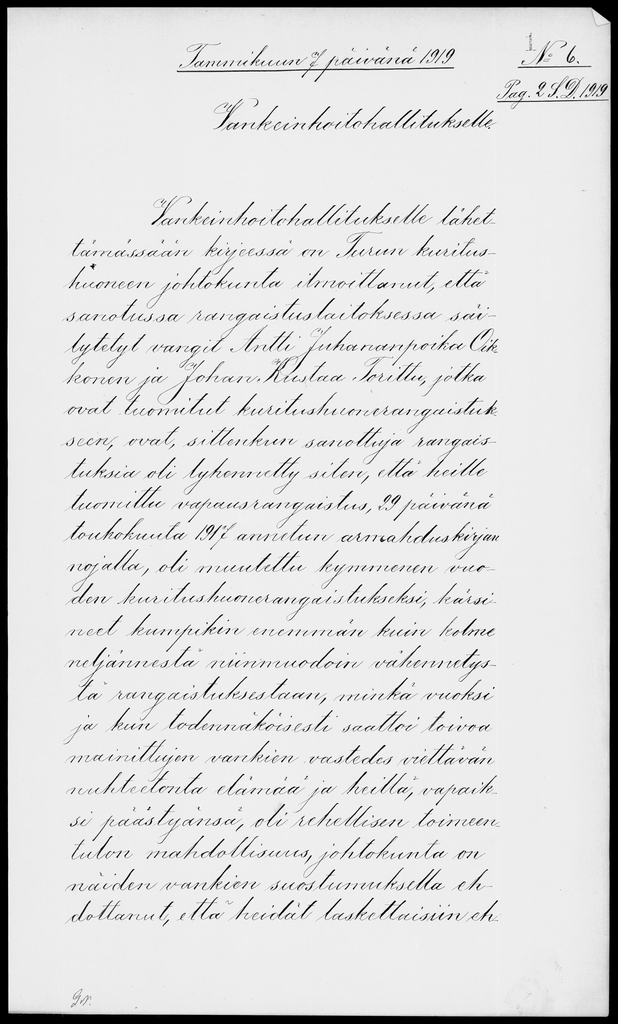 1
Tammikuun 7 päivänä 1919
No 6.
Pag. 2 S.D. 1919
Vankeinhoitohallitukselle.
Vankeinhoitohallitukselle lähet-
tämässään kirjeessä on Turun kuritus-
huoneen johtokunta ilmoittanut, että
sanotussa rangaistuslaitoksessa säi-
lytetyt vangit Antti Juhananpoika Oik-
konen ja Johan Kustaa Torittu, jotka
ovat tuomitut kuritushuonerangaistuk-
seen, ovat, sittenkun sanottuja rangais-
tuksia oli lyhennetty siten, että heille
tuomittu vapausrangaistus, 29 päivänä
toukokuuta 1917 annetun armahduskirjan
nojalla, oli muutettu kymmenen vuo-
den kuritushuonerangaistukseksi, kärsi-
neet kumpikin enemmän kuin kolme
neljännestä niinmuodoin vähennetys-
tä rangaistuksestaan, minkä vuoksi
ja kun todennäköisesti saattoi toivoa
mainittujen vankien vastedes viettävän
nuhteetonta elämää ja heillä, vapaik-
si päästyänsä, oli rehellisen toimeen-
tulon mahdollisuus, johtokunta on
näiden vankien suostumuksella eh-
dottanut, että heidät laskettaisiin eh-